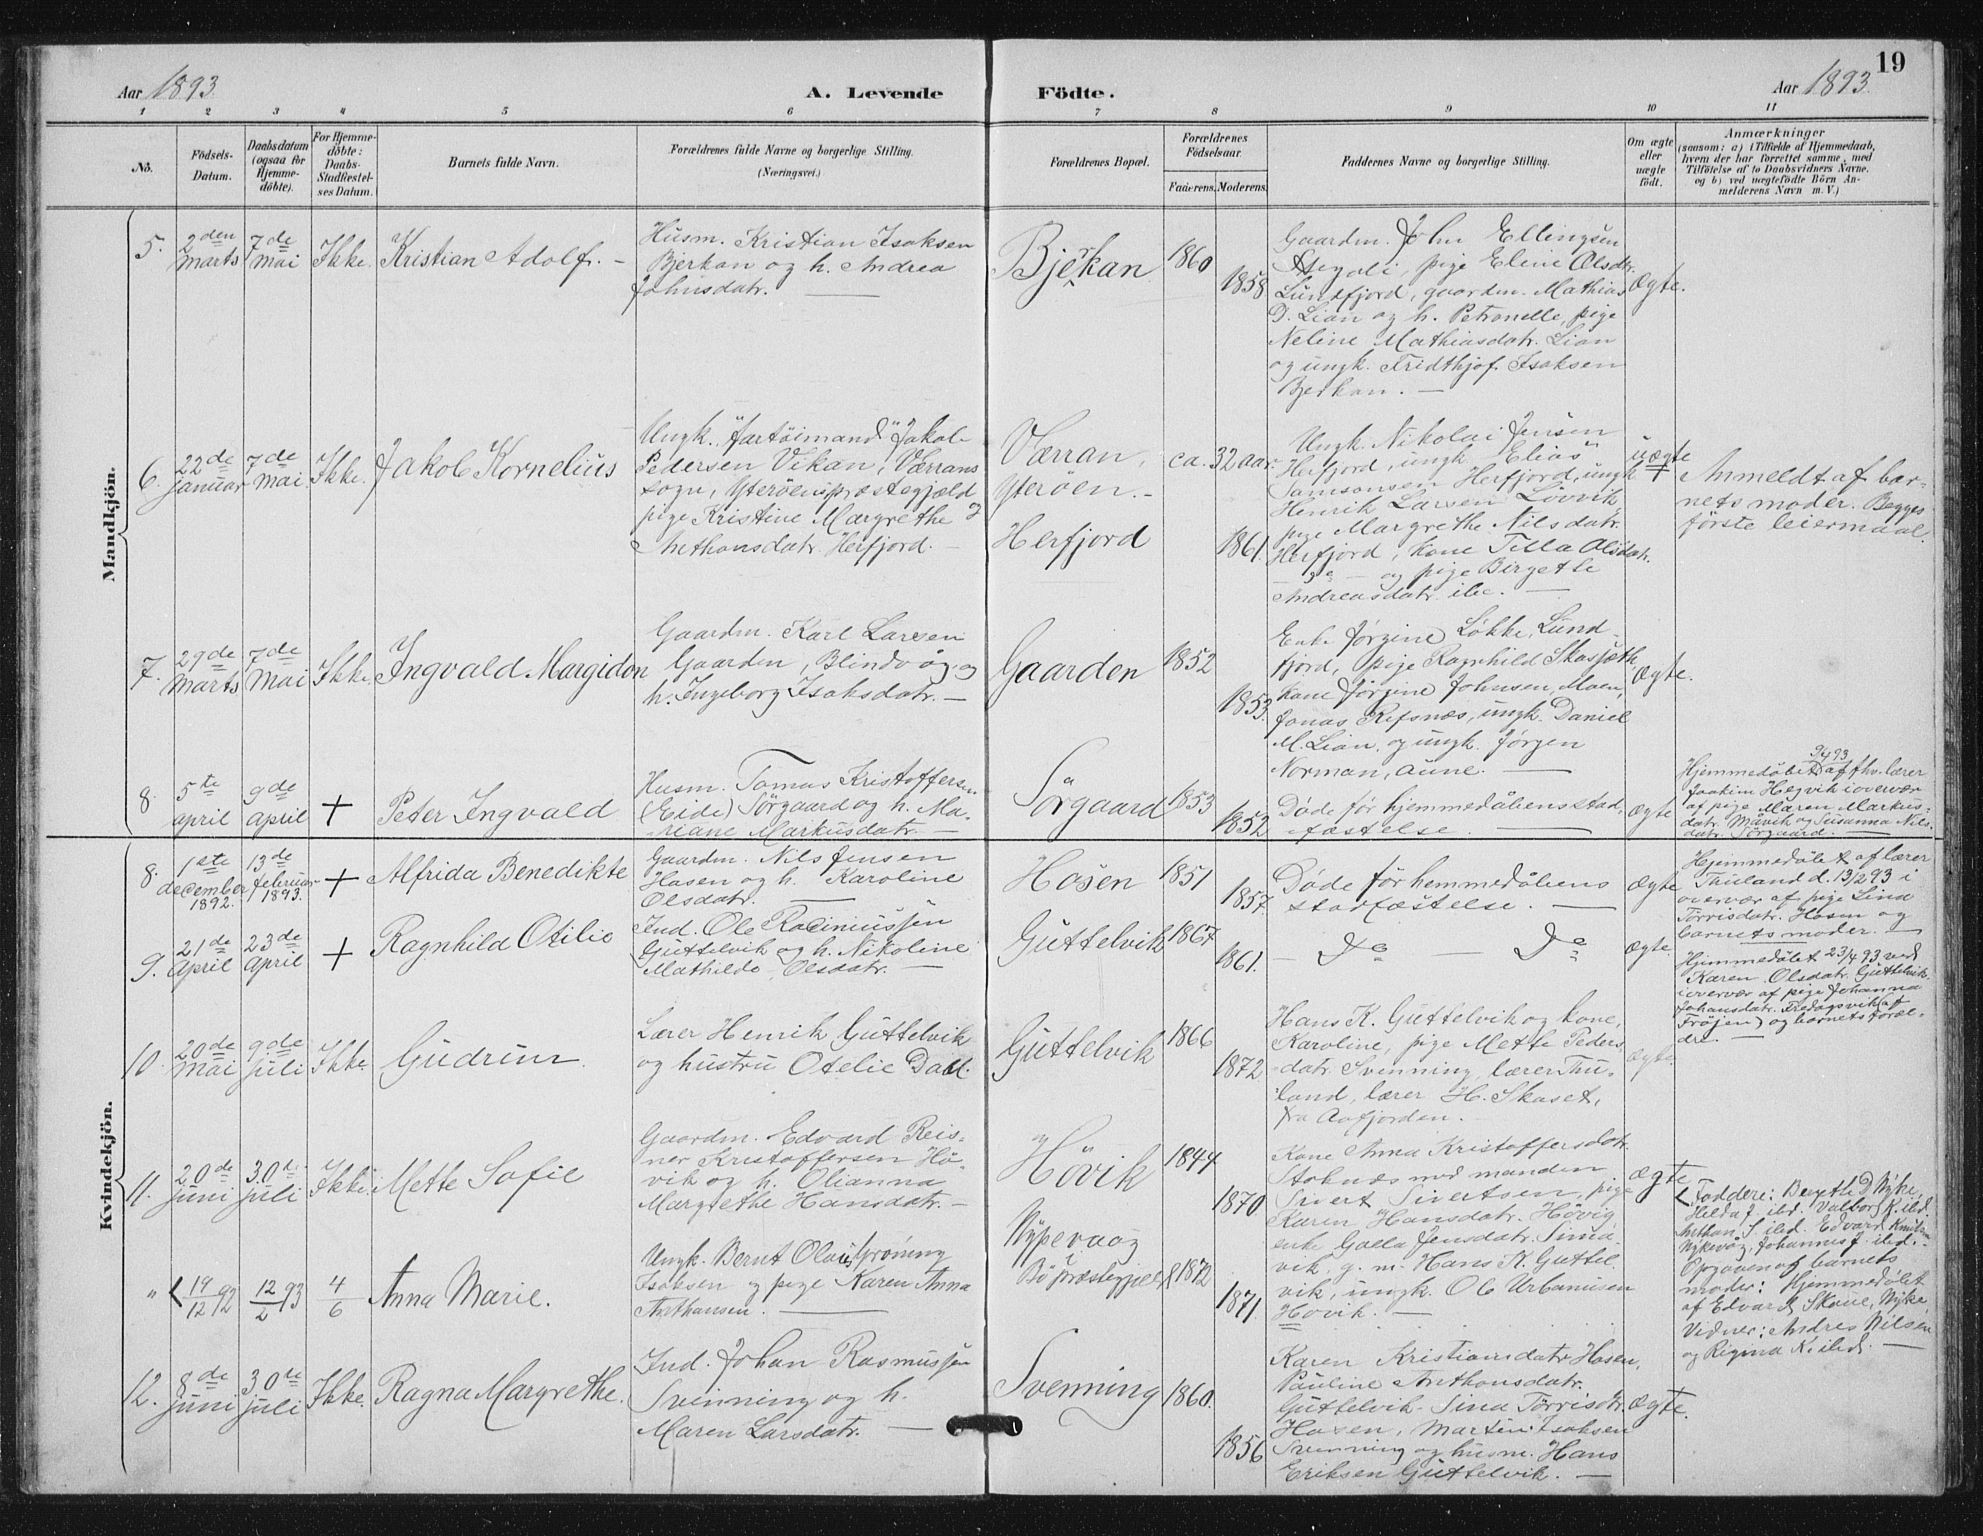 19
Aar 1893.
A. Levende
Födte.
Aar 1893.
1 2 3 4 5 6 7 8 9 10 11
No.
Födsels-
Datum.
Daabsdatum
(ogsaa for
Hjemme-
döbte).
For Hjemme-
döbte:
Daabs-
Stadfæstel-
ses Datum.
Barnets fulde Navn.
Forældrenes fulde Navne og borgerlige Stilling.
(Næringsvei.)
Forældrenes Bopæl.
Forældrenes
Födselsaar.
Faderens. Moderens.
Faddernes Navne og borgerlige Stilling.
Om ægte
eller
uægte
födt.
Anmærkninger
(saasom: a) i Tilfælde af Hjemmedaab,
hvem der har forrettet samme, med
Tilföielse af to Daabsvidners Navne.
og b) ved uægtefödte Börn An-
melderens Navn m. V.)
Mandkjön.
5.
2den
marts
7de
mai
Ikke.
Kristian Adolf. –
Husm. Kristian Isaksen
Bjerkan og h. Andrea
Johnsdatr. —
Bjerkan
1860
1858
Gaardm. John Ellingsen
pige Eline Olsdtr.
Lundfjord, gaardm. Mathias
D. Lian og h. Petronelle, pige
Neline Mathiasdatr. Lian
og ungk. Fridthjof Isaksen
Bjerkan. —
Ægte.
6.
22de
januar
7de
mai
Ikke.
Jakob Kornelius
Ungk. "fartöimand" Jakob
Pedersen Vikan, Værrans
sogn, Yteröens præstegjæld
pige Kristine Margrethe
Anthonsdatr. Herfjord. —
Værran,
Yteröen. –
Herfjord
ca. 32 aar.
1861.
Ungk. Nikolai Jensen
Herfjord, ungk. Elias
Samsonsen Herfjord, ungk
Henrik Larsen Lövvik
pige Margrethe Nilsdatr.
Herfjord, kone Tilla Olsdatr.
— og pige Birgette
Andreasdatr. —
uægte
+
Anmeldt af bar-
nets moder. Begges
förste leiermaal.
7.
29de
Marts
7de
Mai
Ikke.
Ingvald Margidon
Gaardm. Karl Larsen
Gaarden, Blindvåg og
h. Ingeborg Isaksdatr. —
Gaarden
1852
1853.
Enke Jörgine Lökke, Lund-
fjord, pige Ragnhild
kone Jörgine Johnsen, Moen,
Jonas Refsnæs, ungk. Daniel
M. Lian, og ungk. Jörgen
Norman, Aune. —
Ægte.
8.
5te
april
9de
april
+
Peter Ingvald
Husm. Tomas Kristoffersen
(Eide) Sörgaard og h. Ma-
riane Markusdatr. —
Sörgaard
1853
1852
Döde för hjemmedåbens stad-
fæstelse. —
ægte
9/4 93
Hjemmedöbt af fhv. lærer
Joakim Hegvik i overvær
af pige Maren Markus-
datr. Måvik og Susanna Nils-
datr. Sörgaard. —
Kvindekjön.
8.
1ste
december
1892.
13de
februar
1893.
+
Alfrida Benedikte
Gaardm. Nils Jensen
Hosen og h. Karoline
Olsdatr. —
Hosen
1851
1857.
Döde för hemmedåbens
stadfæstelse. —
ægte
Hjemmedöbt af lærer
Thuland d. 13/2 93 i
overvær af pige Lina
Torrisdatr. Hosen og
barnets moder. —
9.
21de
April
23de
April
+
Ragnhild Otilie
Ind. Ole
Guttelvik og h. Nikoline
Mathilde Olsdatr. —
Guttelvik
1867
1861.
— Do — Do
ægte.
Hjemmedöbt 23/4 93 ved
Karen Olsdatr. Guttelvik
i overvær af pige Johanna
Johansdatr.
Fröjen) og barnets foræl-
dre. —
10.
20de
mai
9de
juli
Ikke
Gudrun
Lærer Henrik Guttelvik
og hustru Otelie Dahl.
Guttelvik
1866
1872
Hans K. Guttelvik og kone,
Karoline, pige Mette Peders-
datr. Svenning, lærer Thu-
land, lærer H. Skaset,
fra Aafjorden.
ægte.
11.
20de
juni
30de
juli
Ikke.
Mette Sofie
Gaardm. Edvard Reis-
ner Kristoffersen Hö-
vik og h. Olianna
Margrethe Hansdatr. —
Hövik
1844
1870.
Kone Anna Kristoffersdatr.
Stoknæs med manden
Sivert Sivertsen, pige
Karen Hansdatr. Hövig
enke Golla Jensdatr.
vik, g. m. Hans K. Guttel
vik, ungk. Ole Urbanusen
Hovik. —
ægte
"
19/12 92
12/2 93
4/6
Anna Marie.
Ungk. Bernt Olaus Gröning
Isaksen og pige Karen Anna
Anthonsen. —
Nypevaag
Bö Præstegjeld
1872
1871.
Faddere: Bergithe D. Nyke,
Hilda J. ibd. Valborg K. ibd.
Anthon S. ibd. Edvard Knutsen
Nykvåg, Johannes J. ibd. –
Opgaven af barnets
moder. Hjemmedöbt
af Edvard Skone, Nyke,
Vidner: Andres Nilsen
og Regina K. ibd. —
12.
8de
juni
30de
juli
Ikke.
Ragna Margrethe.
Ind. Johan Rasmussen
Svenning og h.
Maren Larsdatr. —
Svenning
1860.
1856
Karen Kristiansdatr. Hosen,
Pauline Anthonsdatr.
Guttelvik. Lina Torrisdtr
Hosen, Martin Isaksen
Svenning og husm. Hans
Eriksen Guttelvik. —
Ægte.